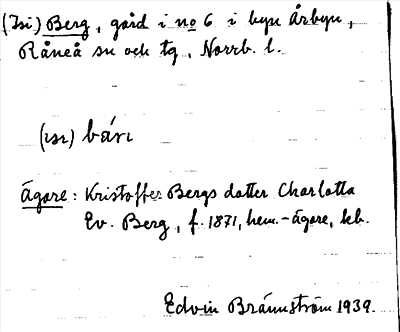 (Isi) Berg, gård i no 6 i byn Årbyn,
Råneå sn och tg, Norrb. l.
(ısı) bárı
Ägare: Kristoffer Bergs dotter Charlotta
Ev. Berg, f. 1871, hem.-ägare, kb.
Edvin Brännström 1939.